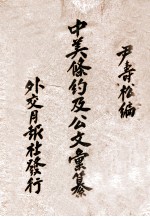 尹壽松編
中美條約及公文彙纂
外交月報社發行